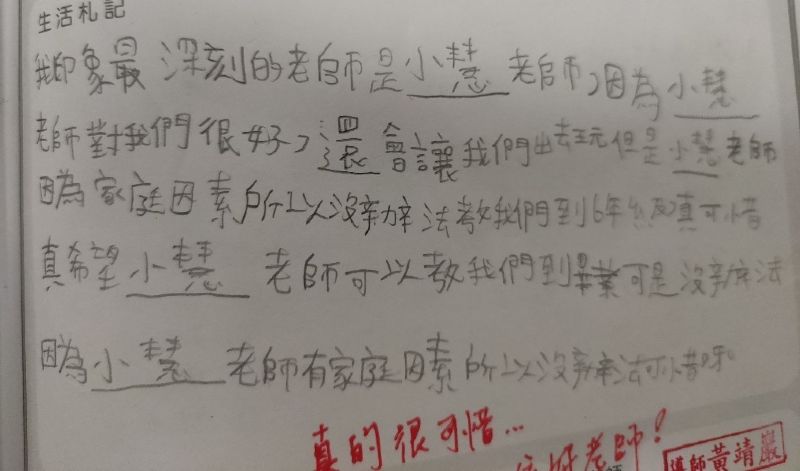 生活札記
我印象最深刻的老師是小慧老師,因為小慧
老師對我們很好,還會讓我們出去玩但是小慧老師
因為家庭因素所以沒辦法教我們到6年級真可惜
真希望小慧老師可以教我們到畢業可是沒辦法
因為小慧老師有家庭因素所以沒辦法可惜呀
真的很可惜...
好老師!
導師黃靖巖